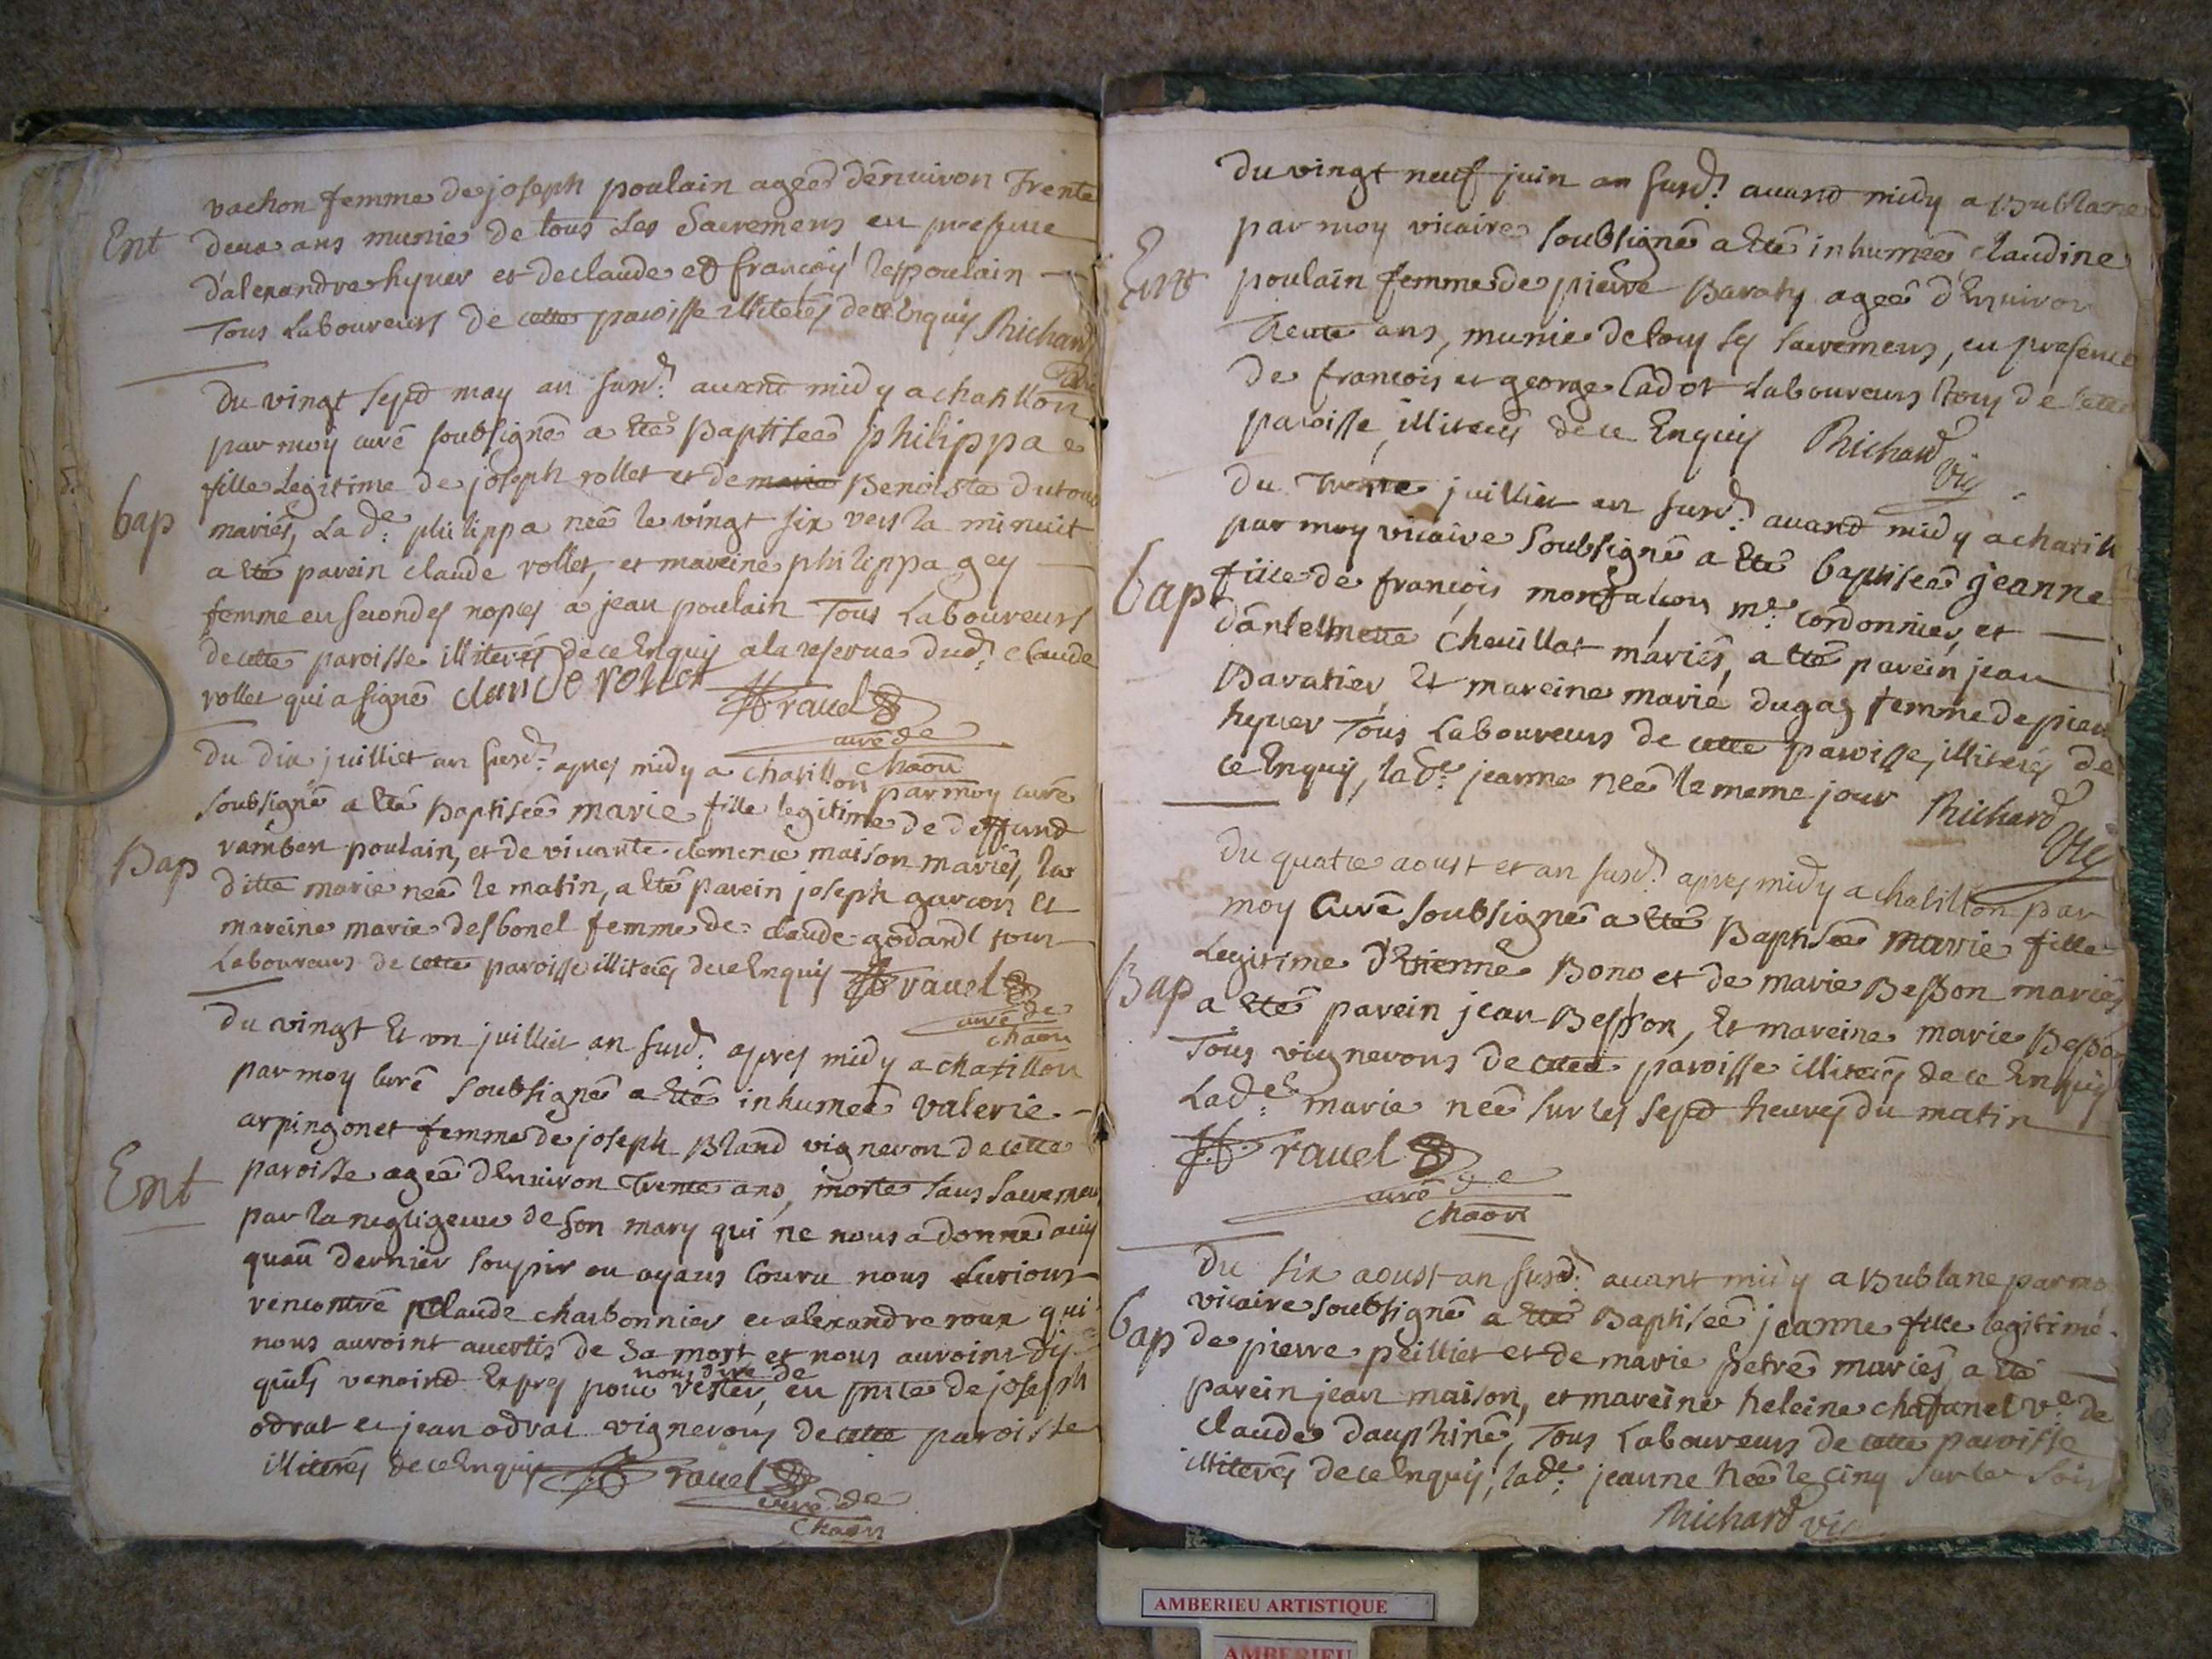 vachon femme de joseph poulain ageé dēnuiron Trente
Ent
deux ans munie de tous Les Sacremens en presence
d'alexandre hyuer et de claude et françoy les poulain
Tous Laboureurs de cette paroisse illiterés de ce Enquis Richard
du vingt sept may an susd. auant midy a chatillon
par moy curé soubsigné a eté Baptiseé philippa
fille Legitime de joseph rollet et de marie Benoiste dutour
bap
mariés, La de. philippa neé le vingt six vers la minuit
a eté parein claude rollet, et mareine philippa gey
femme en secondes nopces á jean poulain Tous Laboureurs
de cette paroisse illiterés de ce Enquis a la reserue dud. claude
rollet qui a signé claude rollet
rauel
curé de
chāon
du dix juilliet an susd. apres midy a chatillon par moy curé
soubsigné a eté Baptiseé marie fille legitime de deffunct
Bap
rambert poulain, et de viuante clemence maison mariés, la
ditte marie neé le matin, a eté parein joseph garcon et
mareine marie desbonel femme de claude godard tous
Laboureurs de cette paroisse illiterés de ce Enquis
rauel
curé de
chaon
du vingt Et vn juilliet an susd. apres midy a chatillon
par moy curé soubsigné a eté inhumeé valerie
arpingonet femme de joseph Bland vigneron de cette
Ent
paroisse ageé d'Enuiron Trente ans, morte sans sacremens
par la negligence de son mary qui ne nous a donné auis
quau dernier soupir ou ayans couru nous aurions
rencontré claude charbonnier et alexandre roux qui
nous auroint auertis de sa mort et nous auroint dis
nous dire de
quils venoind Expres pour rester, en pnce de joseph
odrat et jean odrat vignerons de cette paroisse
illiterés de ce Enquis
rauel
curé de
chaon
du vingt neuf juin an susd. auand midy a Bublane
par moy vicaire soubsigné a eté inhumeé claudine
Ent
poulain femme de pierre Baraty ageé d'Enuiron
Trente ans, munie de tous les sacremens, en presence
de francois et george Cadot Laboureurs tous de cette
paroisse, illiterés de ce Enquis Richard
vic
du Trente juilliet an susd. auand midy a chatill
par moy vicaire soubsigné a eté baptiseé jeanne
bap
fille de francois monfalcon, me. cordonnier, et
d'antelmette cheüillat mariés, a eté parein jean
Baratier, Et mareine marie dugas femme de pierre
hyuer Tous Laboureurs de cette paroisse, illiterés de
ce Enquis, la de. jeanne neé le meme jour Richard
vic
du quatre aoust et an susd. apres midy a chatillon par
moy Curé soubsigné a eté Baptiseé marie fille
Bap
Legitime d'Etienne Bono et de marie Besson mariés
a eté parein jean Besson, Et mareine marie Besson
Tous vignerons de cette paroisse illiterés de ce Enquis
La de. marie neé sur les sept heures du matin
rauel
curé de
chaon
du six aoust an susd. auant midy a Bublane par mo
vicaire soubsigné a eté Baptiseé jeanne fille legitime
bap
de pierre peilliet et de marie petré mariés a eté
parein jean maison, et mareine heleine chafanel ve. de
claude dauphiné, Tous Laboureurs de cette paroisse
illiterés de ce Enquis, la de. jeanne neé le cinq sur le soir
Richard vic
AMBERIEU ARTISTIQUE
AMBERIEU